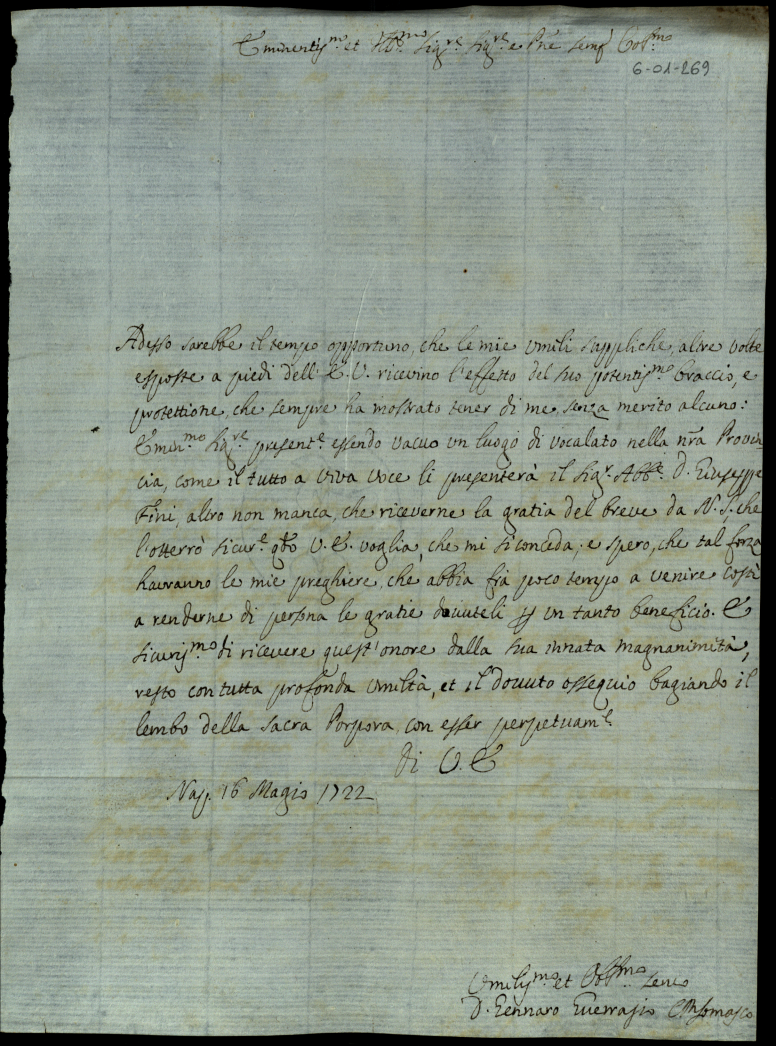 Eminentis.mo et Rev.mo Sig.re Sig.re e Pñe semp. Col.mo
6-01-269
Adesso sarebbe il tempo opportuno, che le mie umili suppliche, altre volte
esposte a piedi dell'E.V. ricevino l'effetto del suo potentis.mo braccio, e
protettione, che sempre ha mostrato tener di me senza merito alcuno:
Emin.mo Sig.re present.e essendo vacuo un luogo di vocalato nella nr̃a Provin-
cia, come il tutto a viva voce li presenterà il Sig.r Abb.e D. Giuseppe
Fini, altro non manca, che riceverne la gratia del breve da N. S. che
l'otterrò sicur.e qto V.E. voglia, che mi si conceda; e spero, che tal forza
havranno le mie preghiere, che abbia frà poco tempo a venire costì
a renderne di persona le gratie dovuteli p un tanto beneficio. E
sicuris.mo di ricevere quest'onore dalla sua innata magnanimità,
resto con tutta profonda umiltà, et il dovuto ossequio bagiando il
lembo della sacra Porpora, con esser perpetuam.e
di V.E
Nap. 16 Magio 1722
Umilis.mo et Obl.mo servo
D. Gennaro Guerrasio Somasco